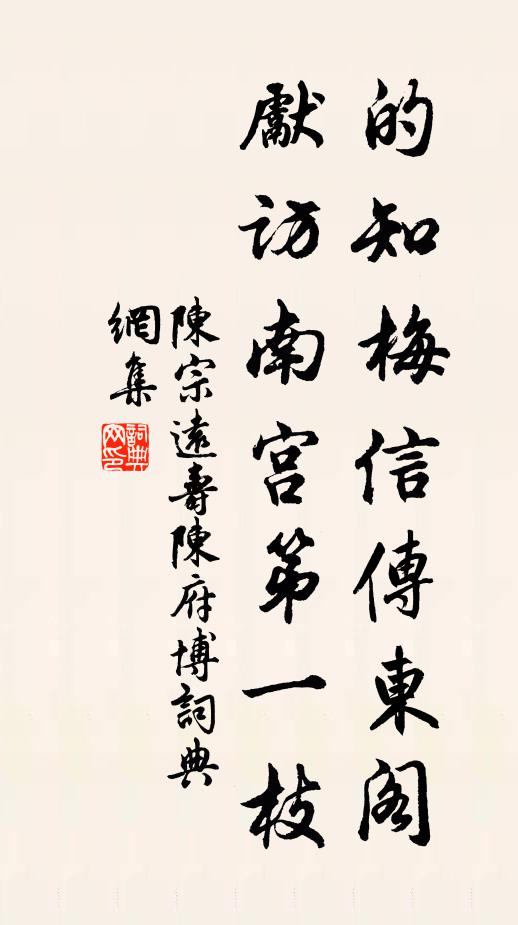 的知梅信傳東阁
獻访南宫第一枝
陳宗遠壽陳府博詞典
網集
詞典
网印